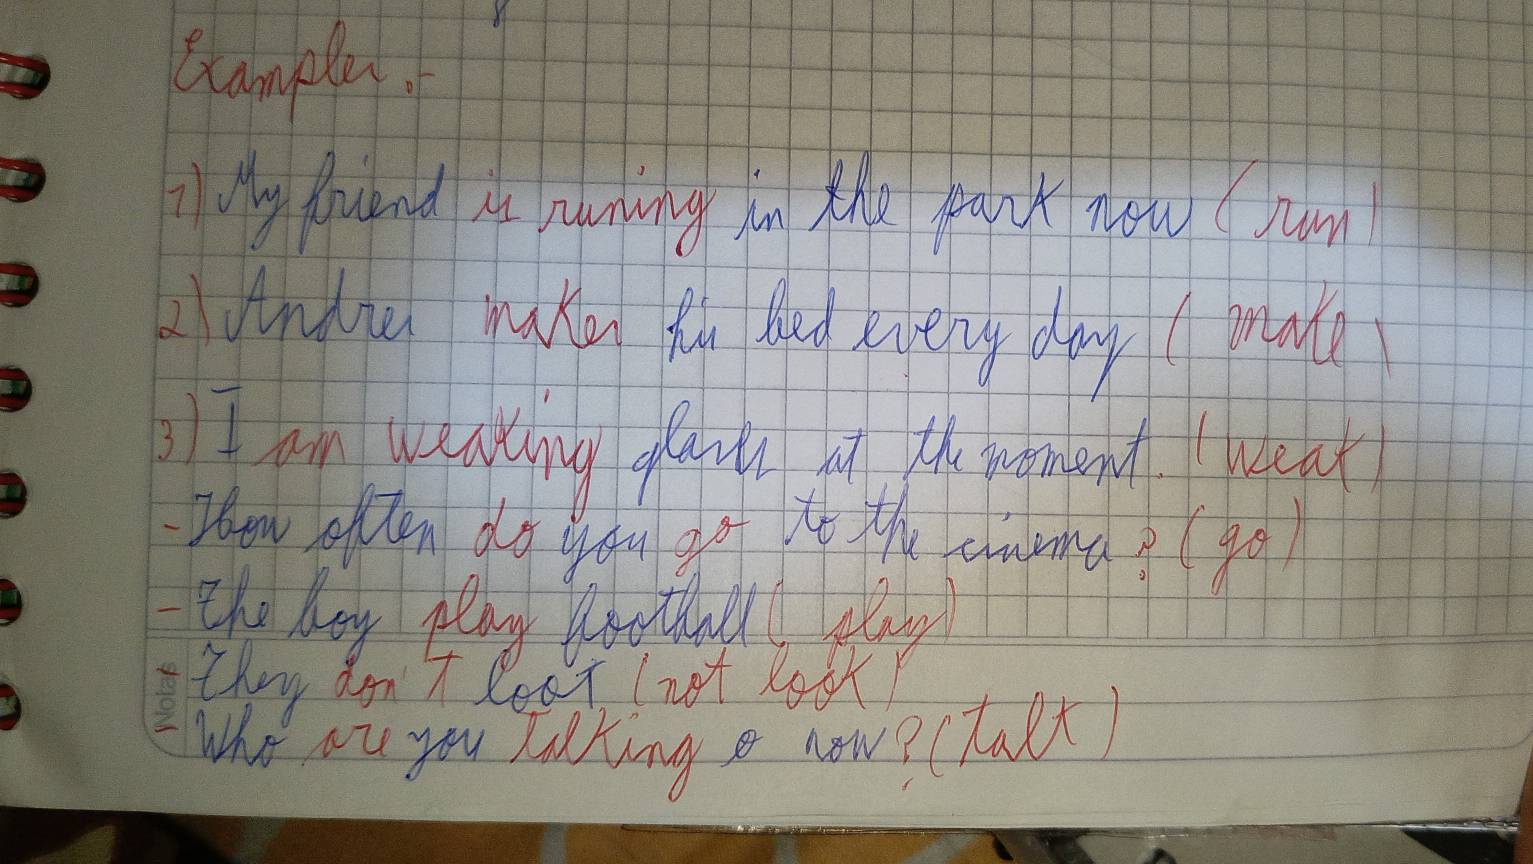 Examples :-
1) My friend is runing in the park now (run)
2) Andres makes his bed every day (make)
3) I am weaking glasses at the moment. (weak)
- How often do you go to the cinema? (go)
- The boy play football (play)
They don't loot (not look)
- Who are you talking now? (talk)
Notas